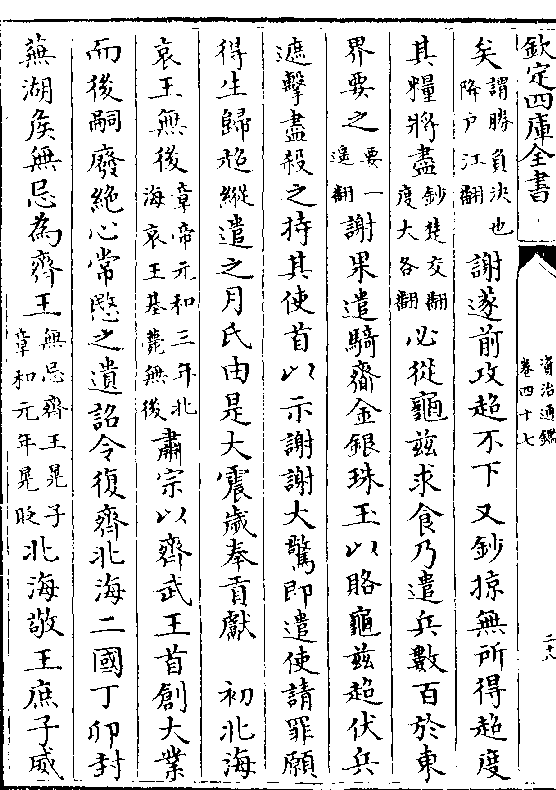 欽定四庫全書
資治通鑑
卷四十七
二十八
矣謂勝負決也降戶江翻謝遂前攻超不下又鈔掠無所得超度
其糧將盡鈔楚交翻度大各翻必從龜兹求食乃遣兵數百於東
界要之要一遥翻謝果遣騎齎金銀珠玉以賂龜兹超伏兵
遮擊盡殺之持其使首以示謝謝大驚即遣使請罪願
得生歸超縱遣之月氏由是大震歲奉貢獻　初北海
哀王無後章帝元和三年北海哀王基薨無後肅宗以齊武王首創大業
而後嗣廢絶心常愍之遺詔令復齊北海二國丁卯封
蕪湖侯無忌為齊王無忌齊王晃子章和元年晃貶北海敬王庶子威